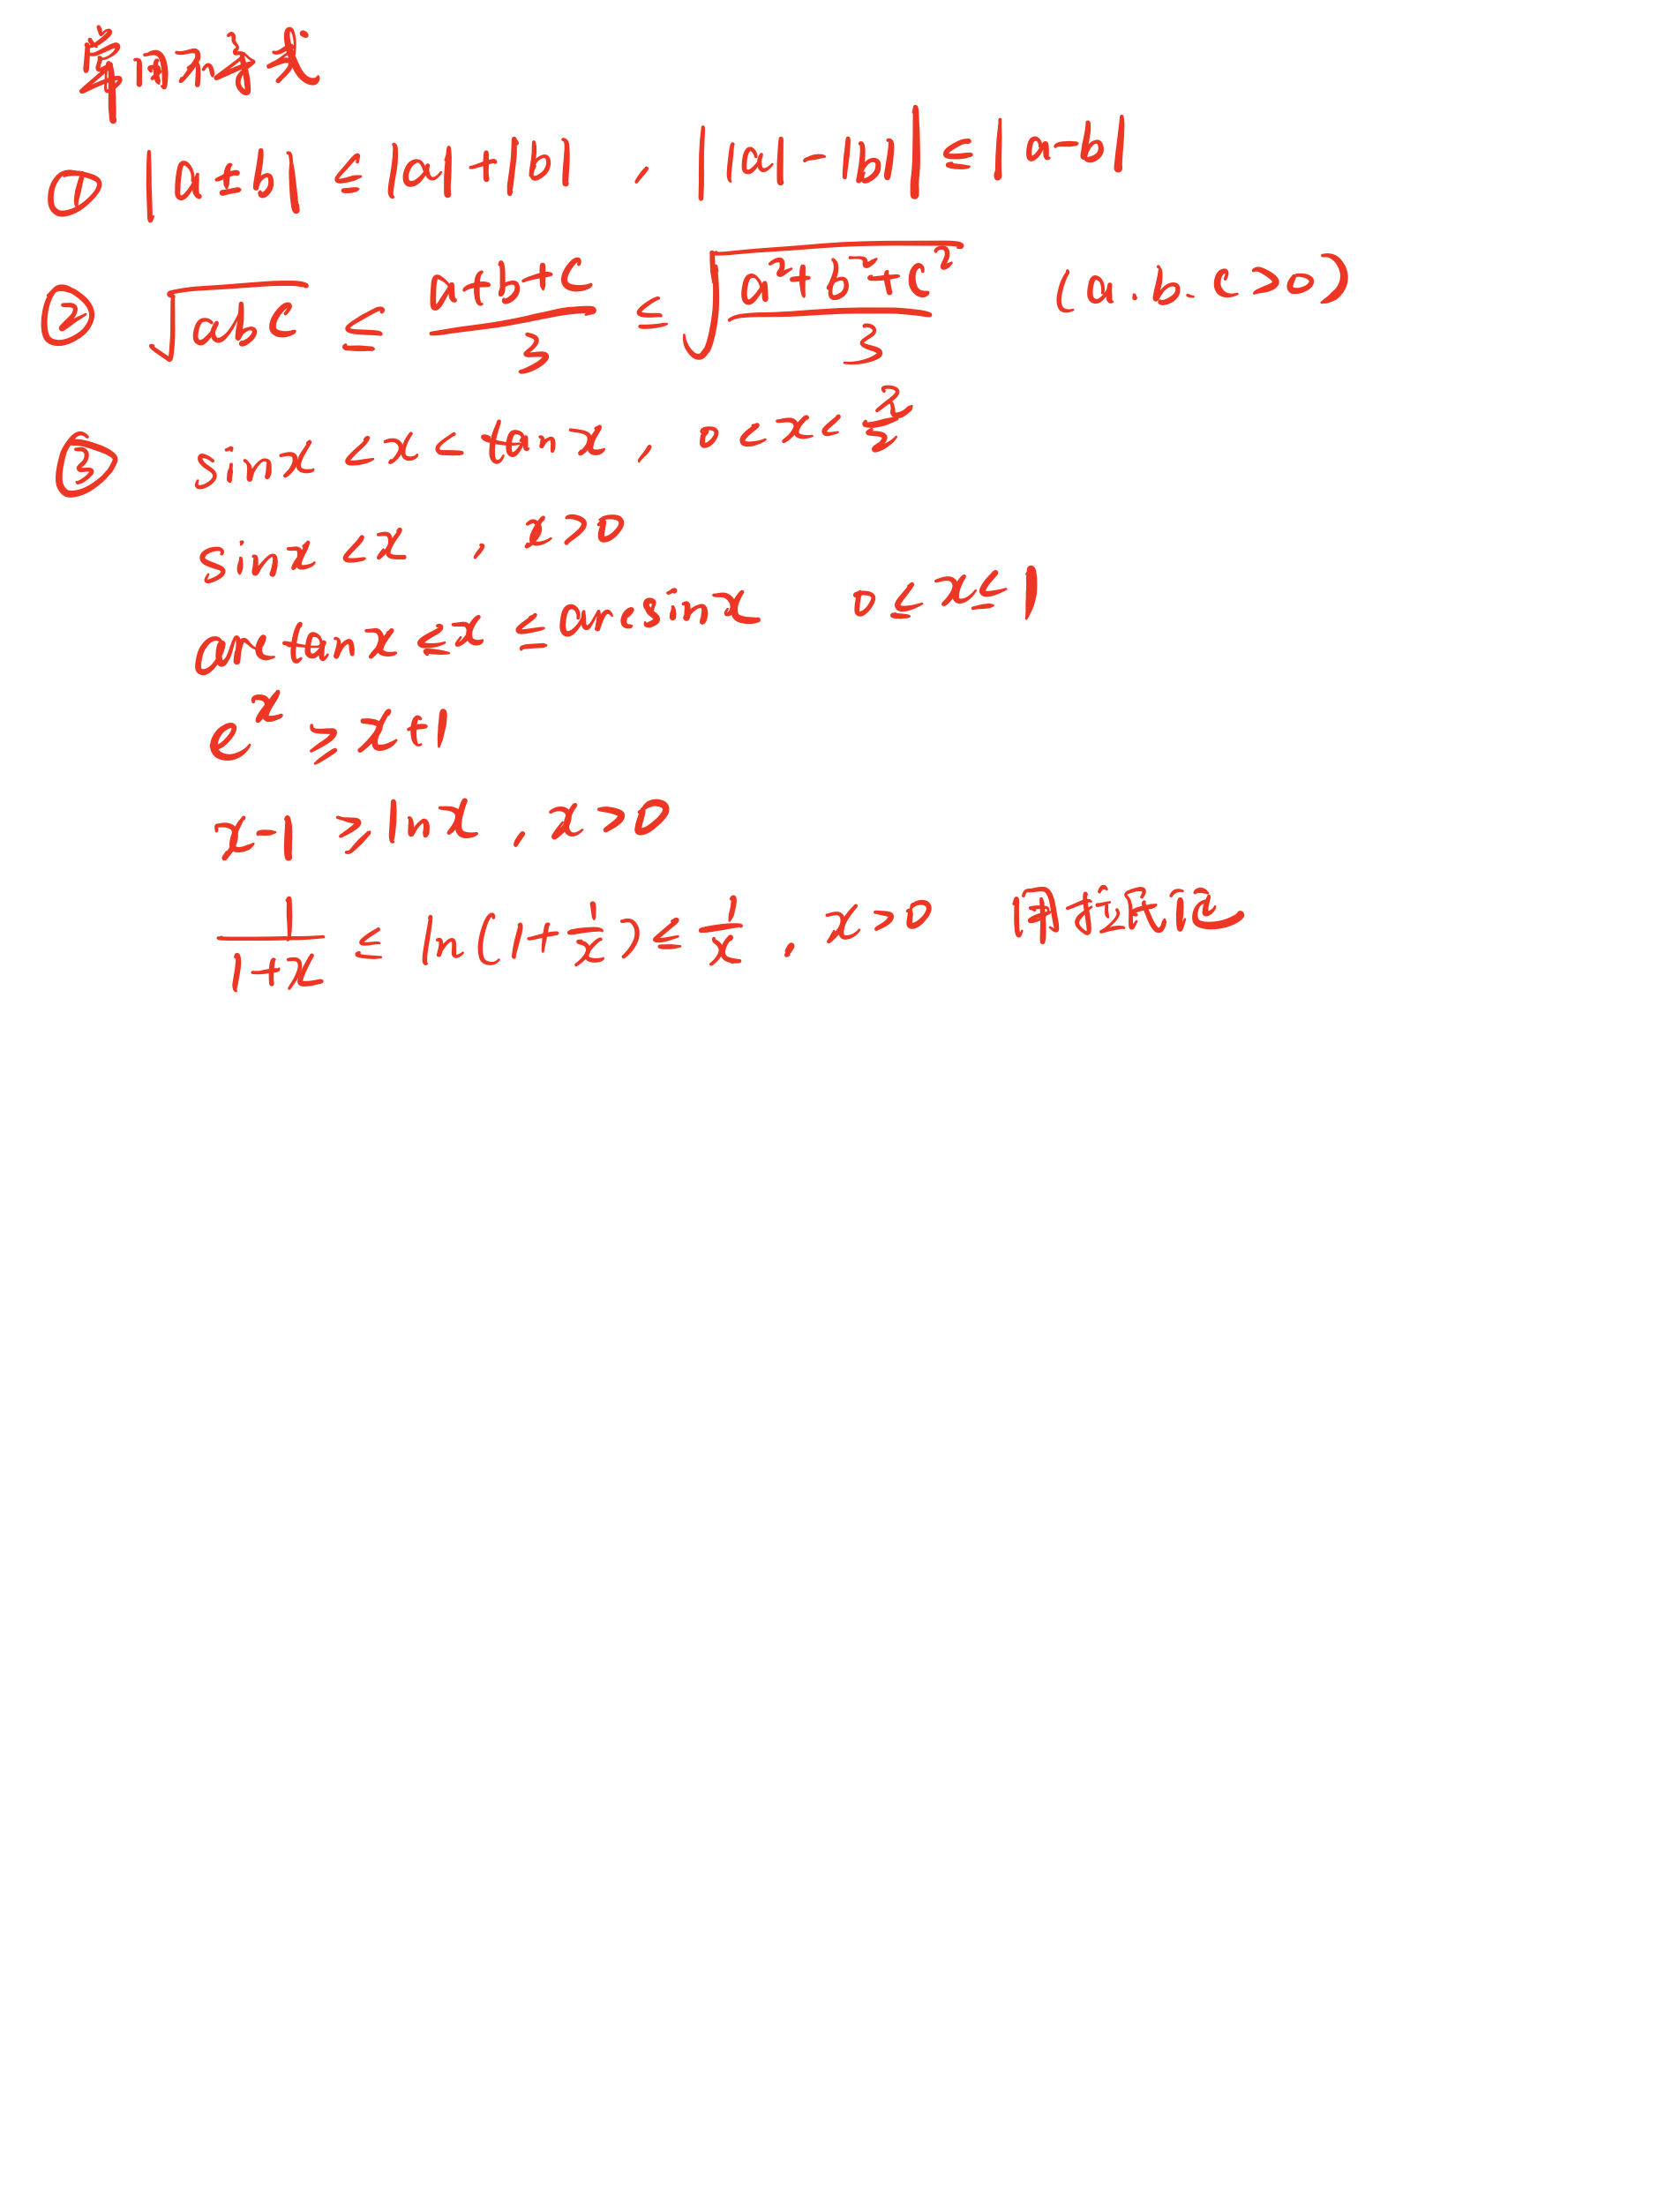 常用不等式
① |a±b| ≤ |a|+|b| , ||a|-|b|| ≤ |a-b|
② √abc ≤ (a+b+c)/3 ≤ √((a²+b²+c²)/3) (a.b.c>0)
③ sinx < x < tanx , 0<x<π/2
sinx < x , x>0
arctanx ≤ x ≤ arcsinx 0≤x≤1
e^x ≥ x+1
x-1 ≥ lnx , x>0
1/(1+x) ≤ ln(1+1/x) ≤ 1/x , x>0 用拉氏证